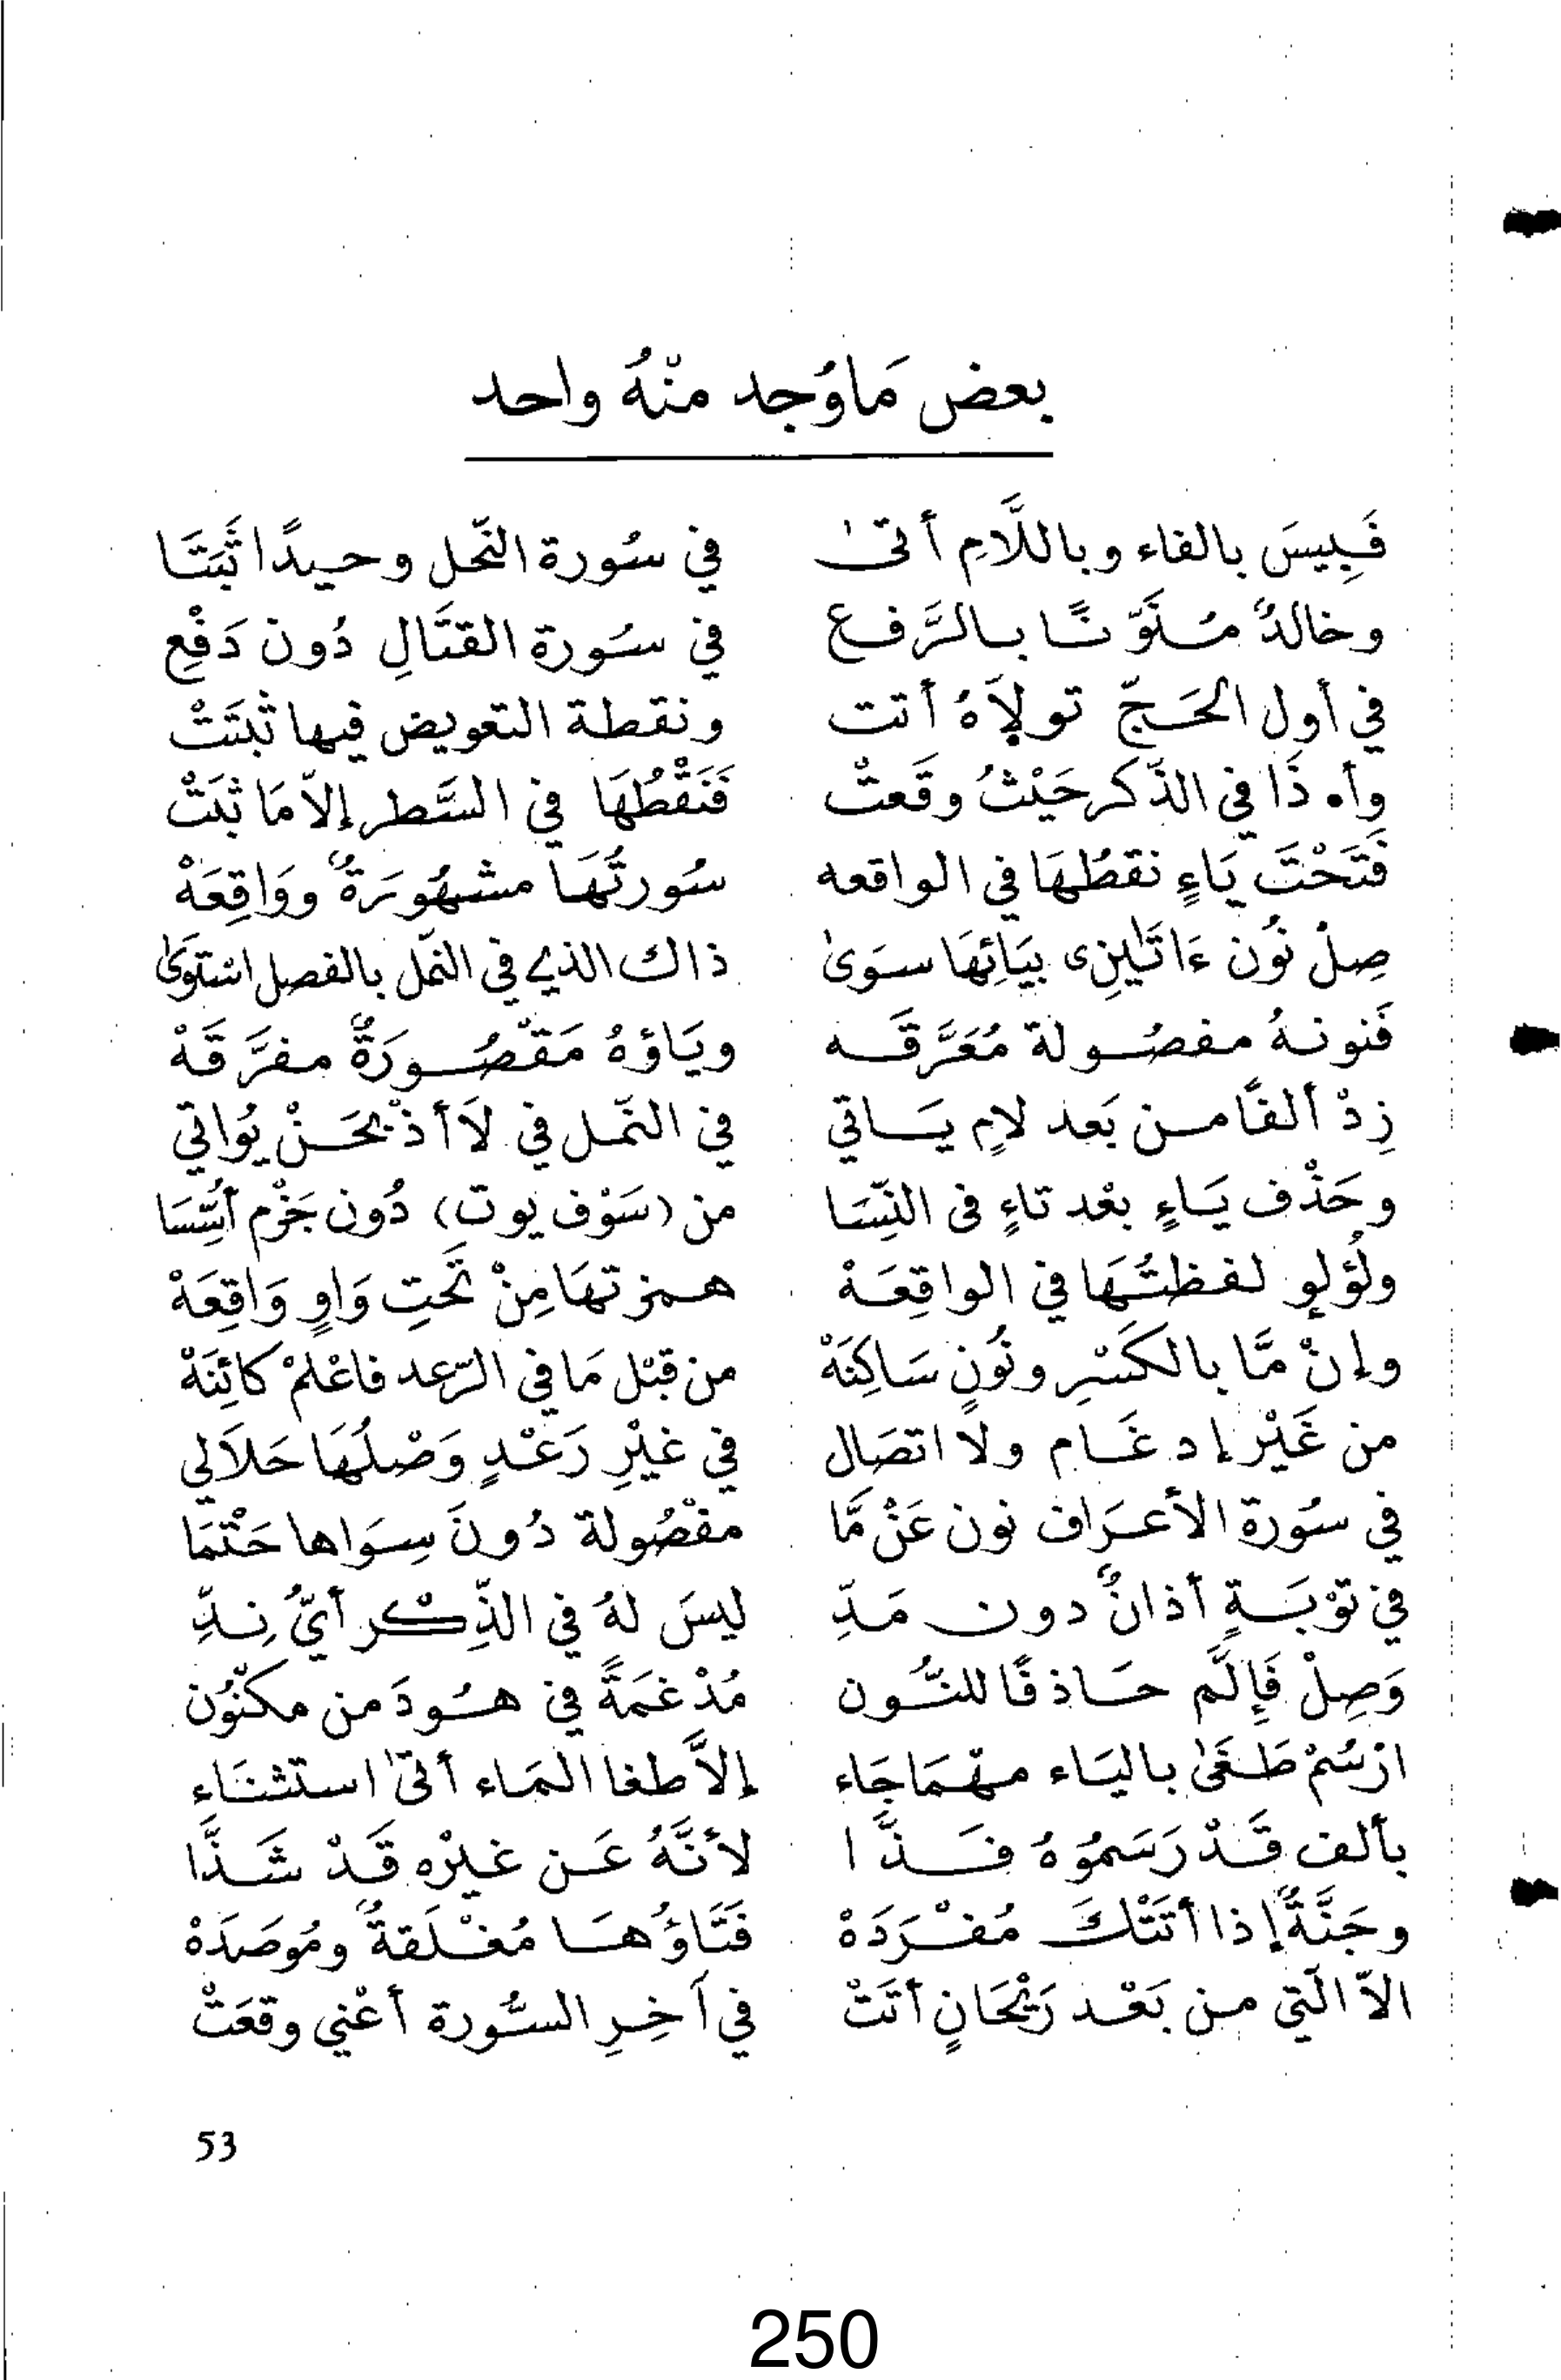 بعض مَا وُجد منْهُ واحد
فَبِيسَ بالفاء وباللَّامِ أتىٰ    في سُورة النّحل وحيدًا ثَبَتَا
وخالدٌ مُنَوَّنًا بالرَّفع    في سُورة القتَالِ دُون دَفْعِ
في أول الحَجّ تولاَهُ أتت    ونقطة التعويض فيها ثبَتَتْ
وأه ذَا في الذّكر حَيْثُ وقَعتْ    فَنَقْطُهَا في السَّطر إلاّ مَا ثبَتْ
فَتَحْتَ يَاءٍ نقطُهَا في الواقعه    سُورتُهَا مشهُورَةٌ ووَاقِعَهْ
صِلْ نُون ءَاتَىٰنِى بيَائِهَا سوَىٰ    ذاك الذي في النّمل بالفصل اسْتَوَىٰ
فَنونهُ مفصُولة مُعَرَّقَه    ويَاؤهُ مَقْصُورَةٌ مفرَّقَهْ
زِدْ ألفًا من بَعد لامٍ يَاتي    في النّمل في لَاأذْبحَنْ يُواتي
وحَذْف يَاءٍ بعْد تاءٍ في النِّسَا    من (سَوْف يوت) دُون جَزْم أسِّسَا
ولُؤلوٍ لفظتُهَا في الواقِعَهْ    همزتهَا مِنْ تَحتِ وَاوٍ وَاقِعَهْ
وإنْ مَّا بالكَسْرِ ونُونٍ سَاكِنَهْ    من قبْل مَا في الرّعد فاعْلمْ كائِنَهْ
من غَيْر إدغَام ولا اتصَال    في غيْرِ رَعْدٍ وَصْلُهَا حَلاَ لي
في سُورة الأعرَاف نون عَنْ مَّا    مفْصُولة دُونَ سِوَاها حَتْمَا
في توْبَةٍ أذانٌ دون مَدِّ    ليسَ لهُ في الذِّكْر أيُّ نِدِّ
وَصِلْ فَإلَّم حَاذفًا للنُّون    مُدْغمَةً في هُودَ من مكنُون
ارْسُمْ طَغَىٰ باليَاء مهْمَا جَاء    إلاَّ طغا المَاء أتىٰ استثنَاءِ
بألف قَدْ رَسَمُوهُ فَذَّا    لأنَّهُ عَن غيْره قَدْ شَذَّا
وجَنَّةٌ إذا أتَتْكَ مُفْرَدَهْ    فَتَاؤُهَا مُغْلَقةٌ ومُوصَدَهْ
الاّ الّتي من بَعْد رَيْحَانٍ أتَتْ    في آخِرِ السُّورة أعْني وقعَتْ
53
250